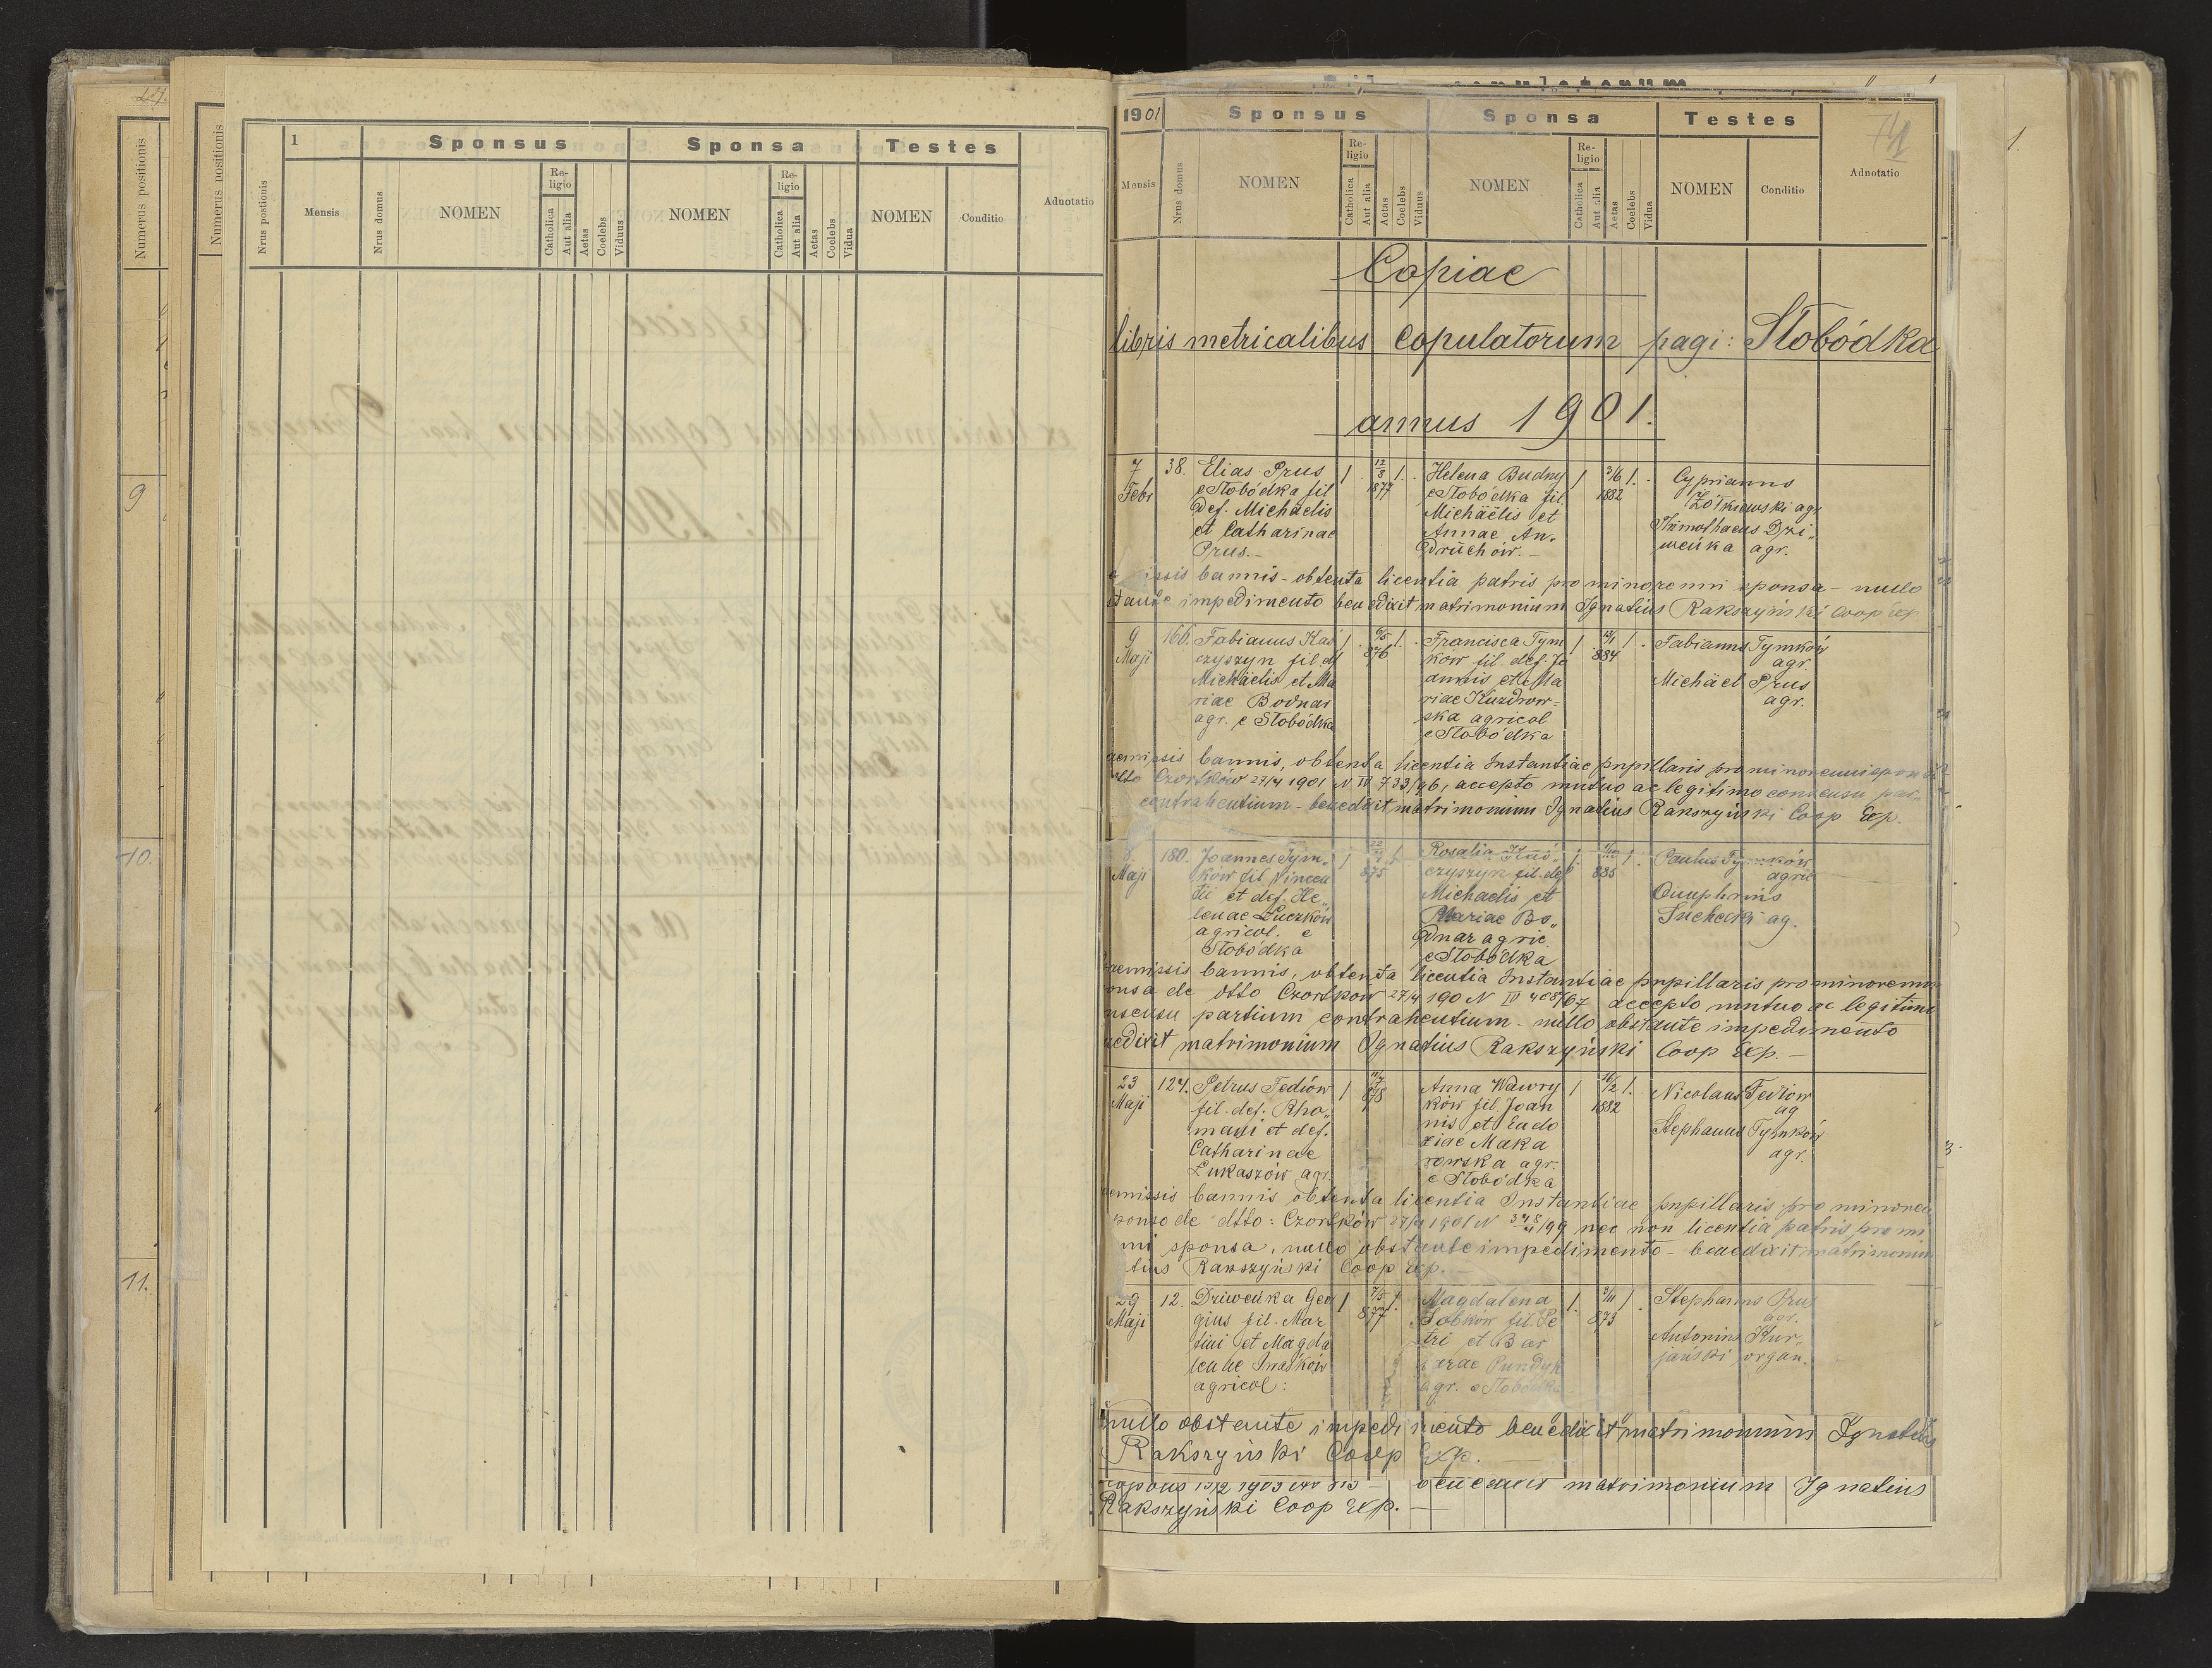 27.
Numerus positionis
9
10.
11.
Numerus positionis
1
Sponsus
Sponsa
Testes
Nrus postionis
Mensis
Nrus domus
NOMEN
Re-
ligio
Catholica
Aut alia
Aetas
Coelebs
Viduus
NOMEN
Re-
ligio
Catholica
Aut alia
Aetas
Coelebs
Vidua
NOMEN
Conditio
Adnotatio
copulatorum
1901
Sponsus
Sponsa
Testes
74
1.
Mensis
Nrus domus
NOMEN
Re-
ligio
Catholica
Aut alia
Aetas
Coelebs
Viduus
NOMEN
Re-
ligio
Catholica
Aut alia
Aetas
Coelebs
Vidua
NOMEN
Conditio
Adnotatio
Copiae
libris metricalibus Copulatorum pagi: Słobódka
annus 1901.
7
Febr
38.
Elias Prus
e Słobódka fil
def. Michaëlis
et Catharinae
Prus.-
1
12/8
1877
1.
Helena Budny
e Słobódka fil
Michäelis et
Annae An-
druchów.-
1
3/6
1882
1.
Cyprianus
Żółkiewski agr
Thimothaeus Dzi„
weńka agr.
issis bannis - obtenta licentia patris pro minorenni sponsa - nullo
stante impedimento benedixit matrimonium Ignatius Rakszyński Coop Exp
9
Maji
166.
Fabianus Kas
czyszyn fil. df
Michäelis et Ma
riae Bodnar
agr. e Słobódka
1
6/5
876
1.
Francisca Tym
ków fil. def. Jo
annis et Ma
riae Kuzdrow-
ska agricol
e Słobódka
1
884
1.
Fabianus Tymków
agr.
Michäel Prus
agr.
aemissis bannis, obtenta licentia Instantiae pupillaris pro minorenni spon
dtto Czortków 27/4 1901 N IV 733/96, accepto mutuo ac legitimo consensu par„
contrahentium - benedixit matrimonium Ignatius Rakszyński Coop Exp.
8.
Maji
180.
Joannes Tym„
ków fil Vincen
tii et def. He„
lenae Łuczków
agricol. e
Słobódka
1
875
1.
Rosalia
czyszyn fil. def
Michaelis et
Mariae Bo„
dnar agric.
e Słobódka
1.
885
1.
Paulus Tymków
agric
Onuphrius
Suchecki ag.
aemissis bannis, obtenta licentia Instantiae pupillaris pro minorenni
onsa de dtto Czortków 27/4 190 N IV 408/67 accepto mutuo ac legitimo
nsensu partium contrahentium - nullo obstante impedimento
nedixit matrimonium Ignatius Rakszyński Coop Exp.-
23
Maji
127.
Petrus Fediów
fil. def. Rho„
mani et def.
Catharinae
Łukaszów agr.
1
878
Anna Wawry
ków fil Joan
nis et Eudo
xiae Maka
rowska agr.
e Słobódka
1
16/2
1882
1.
Nicolaus Fediow
ag
Stephanus Tymków
agr.
3.
aemissis bannis obtenta licentia Instantiae pupillaris pro minoren
ponso de dtto: Czortków 27/4 1901 N 348/4/99 nec non licentia patris pro mi
nni sponsa, nullo obstante impedimento - benedixit matrimonium
tius Rakszyński Coop Exp.-
29
Maji
12.
Dziweńka Geor
gius fil. Mar
tini et Magda
lenae Iwasków
agricol:
1
7/5
877
1.
Magdalena
Sobków fil. Pe
tri et Bar
barae Pundyk
agr. e Słobódka
1.
2/11
873
1.
Stephanus Prus
agr.
Antonius Kur-
jański organ.
nullo obstante impedimento benedixit matrimonium Ignatius
Rakszyński Coop Exp.-
13/2 1903 matrimonium Ignatius
Rakszyński Coop Exp.-